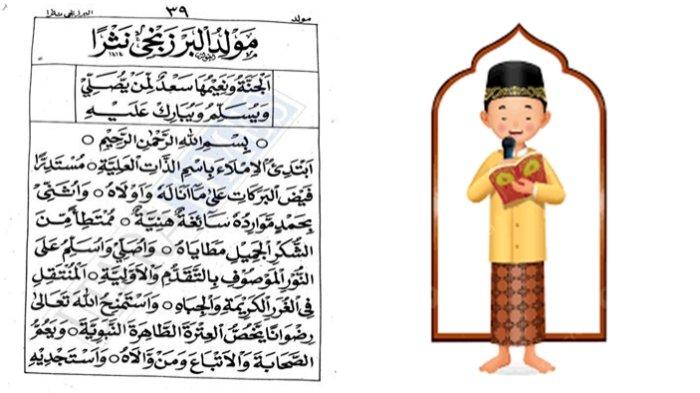 مولد
٣٩
مَوْلِدُ الْبَرْزَنْجِيْ نَثْرًا
اَلْجَنَّةُ وَنَعِيْمُهَا سَعْدٌ لِمَنْ يُصَلِّيْ
وَيُسَلِّمُ وَيُبَارِكُ عَلَيْهِ
بِسْمِ اللهِ الرَّحْمٰنِ الرَّحِيْمِ
اَبْتَدِئُ الْاِمْلَاءَ بِاسْمِ الذَّاتِ الْعَلِيَّةِ ○ مُسْتَدِرًّا
فَيْضَ الْبَرَكَاتِ عَلٰى مَا اَنَالَهُ وَاَوْلَاهُ ○ وَاُثَنِّيْ
بِحَمْدٍ مَوَارِدُهُ سَائِغَةٌ هَنِيَّةٌ ○ مُمْتَطِأً مِنَ
الشُّكْرِ الْجَمِيْلِ مَطَايَاهُ ○ وَاُصَلِّيْ وَاُسَلِّمُ عَلَى
النُّوْرِ الْمَوْصُوْفِ بِالتَّقَدُّمِ وَالْاَوَّلِيَّةِ ○ الْمُنْتَقِلِ
فِي الْغُرَرِ الْكَرِيْمَةِ وَالْجِبَاهِ ○ وَاَسْتَمْنِحُ اللهَ تَعَالٰى
رِضْوَانًا يَخُصُّ الْعِتْرَةَ الطَّاهِرَةَ النَّبَوِيَّةَ ○ وَيَعُمُّ
الصَّحَابَةَ وَالْاَتْبَاعَ وَمَنْ وَالَاهُ ○ وَاَسْتَجْدِيْهِ